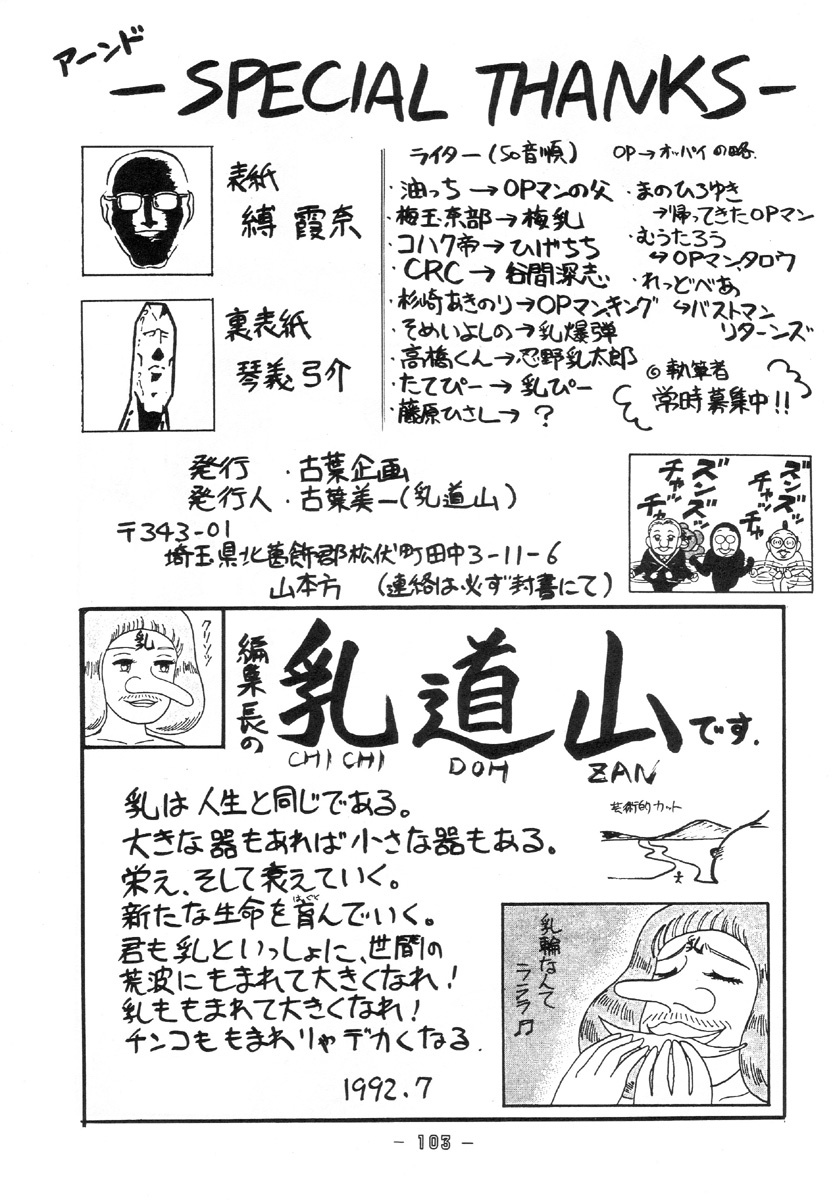 アーンド
－SPECIAL THANKS－
表紙
縛 霞奈
裏表紙
琴義弓介
ライター(50音順) OP→オッパイの略.
・油っち→OPマンの父
・梅玉奈部→梅乳
・コハク帝→ひげちち
・CRC→谷間深志
・杉崎あきのり→OPマンキング
・そめいよしの→乳爆弾
・高橋くん→忍野乳太郎
・たてぴー→乳ぴー
・藤原ひさし→?
・まのひろゆき
→帰ってきたOPマン
・むうたろう
↳OPマンタロウ
・れっどべあ
↳バストマン
リターンズ
◎執筆者
常時募集中!!
発行 ・古葉企画
発行人・古葉美一(乳道山)
〒343-01
埼玉県北葛飾郡松伏町田中3-11-6
山本方 (連絡は必ず封書にて)
ズンズン
チャッチャ
ズンズン
チャッチャ
乳
クリンッ
編集長の
乳道山です.
CHI CHI DOH ZAN
乳は人生と同じである。
大きな器もあれば小さな器もある。
栄え、そして衰えていく。
新たな生命を育んでいく。
君も乳といっしょに、世間の
荒波にもまれて大きくなれ!
乳ももまれて大きくなれ!
チンコももまれりゃデカくなる.
1992.7
芸術的カット
乳輪な人て
ラララ♬
乳
－ 103 －